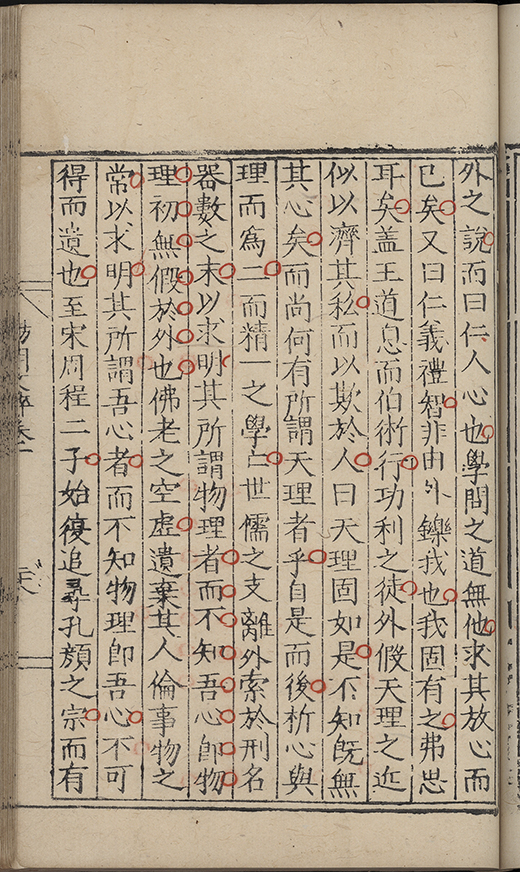 外之說而曰仁人心也學問之道無他求其放心而
已矣又曰仁義禮智非由外鑠我也我固有之弗思
耳矣盖王道息而伯術行功利之徒外假天理之近
似以濟其私而以欺於人曰天理固如是不知旣無
其心矣而尚何有所謂天理者乎自是而後析心與
理而爲二而精一之學亡世儒之支離外索於刑名
器數之末以求明其所謂物理者而不知吾心卽物
理初無假於外也佛老之空虛遺棄其人倫事物之
常以求明其所謂吾心者而不知物理卽吾心不可
得而遺也至宋周程二子始復追尋孔顏之宗而有